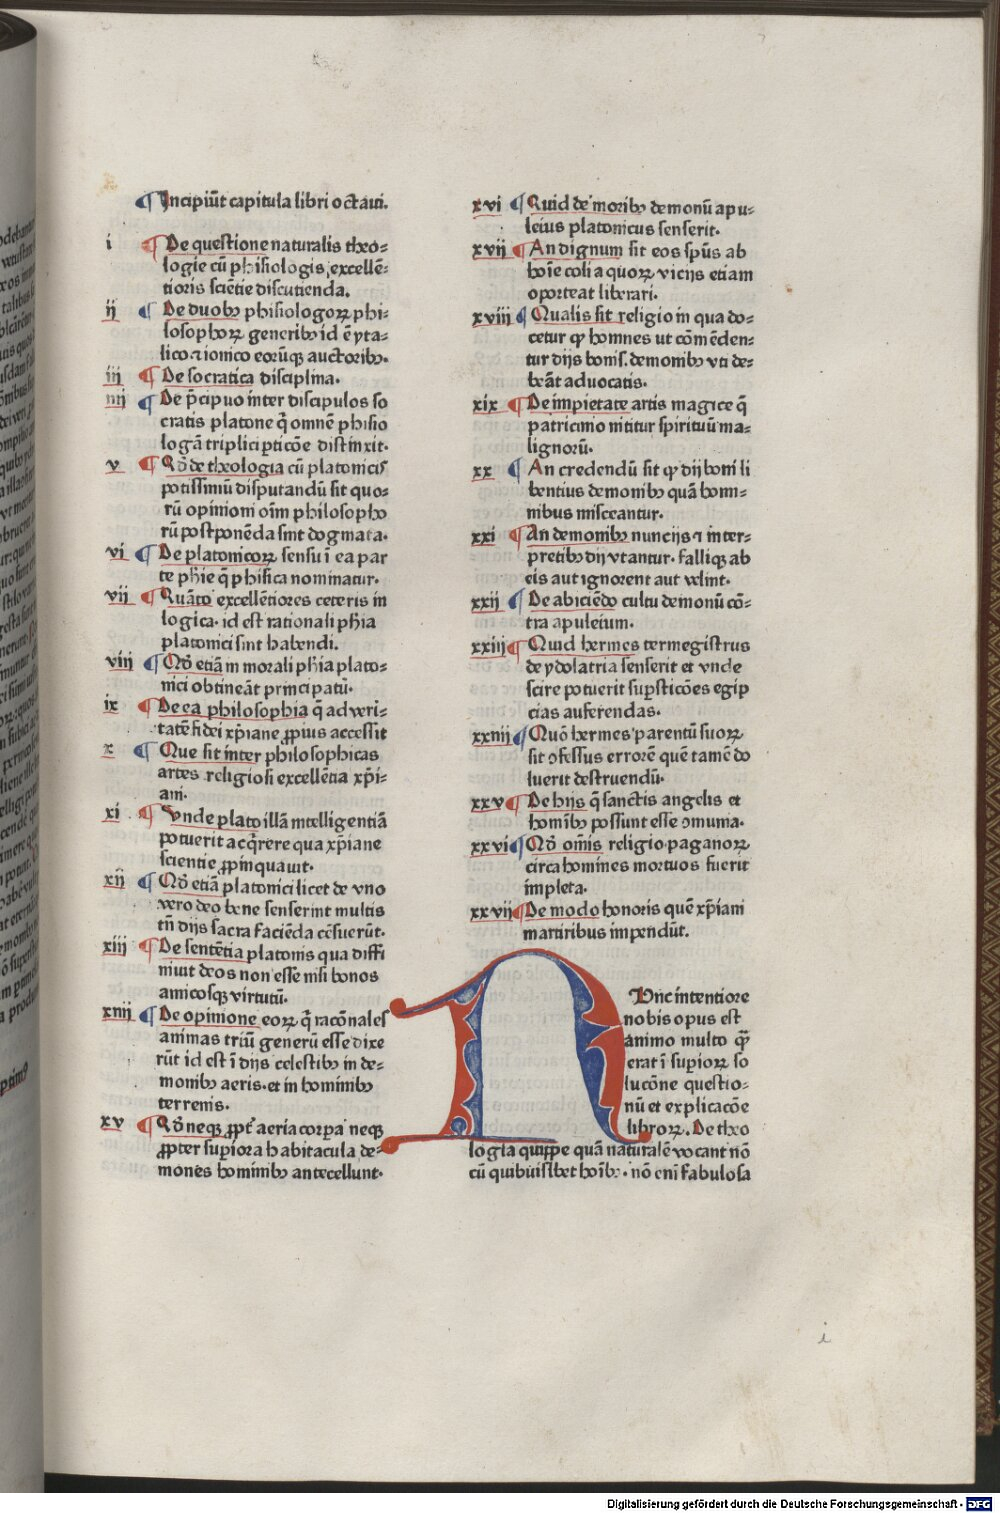 ¶ Incipiūt capitula libri octaui.
i ¶ De questione naturalis theo⸗
logie cū phisiologis excellē⸗
tioris sciētie discutienda.
ij ¶ De duobꝫ phisiologoꝝ phi⸗
losophoꝝ generibꝫ id ē yta⸗
lico ⁊ ionico eorūqꝫ auctoribꝫ.
iij ¶ De socratica disciplina.
iiij ¶ De p̄cipuo inter discipulos so
cratis platone q̄ omnē phisio
logā triplici pticōe distinxit.
v ¶ Qō de theologia cū platonicis
potissimū disputandū sit quo⸗
rū opinioni oīm philosopho
rū postponēda sint dogmata.
vi ¶ De platonicoꝝ sensu ī ea par
te phīe q̄ phisica nominatur.
vij ¶ Quāto excellētiores ceteris in
logica. id est rationali phīa
platonici sint habendi.
viij ¶ Qō etiā in morali phīa plato⸗
nici obtineāt principatū.
ix ¶ De ea philosophia q̄ ad veri⸗
tatē fidei xp̄iane ꝓpius accessit
x ¶ Que sit inter philosophicas
artes religiosi excellētia xp̄i⸗
ani.
xi ¶ Vnde plato illā intelligentiā
potuerit acq̄rere qua xp̄iane
scientie ꝓpinquauit.
xij ¶ Qō etiā platonici licet de vno
vero deo bene senserint multis
tn̄ dijs sacra faciēda cēsuerūt.
xiij ¶ De sentētia platonis qua diffi
niuit deos non esse nisi bonos
amicosqꝫ virtutū.
xiiij ¶ De opinione eoꝝ q̄ racōnales
animas triū generū esse dixe
rūt id est ī dijs celestibꝫ in de⸗
monibꝫ aeris. et in hominibꝫ
terrenis.
xv ¶ Qō neqꝫ ꝓpt̄ aeria corpa neqꝫ
ꝓpter supiora habitacula de⸗
mones hominibꝫ antecellunt.
xvi ¶ Quid de moribꝫ demonū apu⸗
leius platonicus senserit.
xvij ¶ An dignum sit eos sp̄us ab
hoīe coli a quoꝝ vicijs etiam
oporteat liberari.
xviij ¶ Qualis sit religio in qua do⸗
cetur ꝙ homines ut cōmēden⸗
tur dijs bonis. demonibꝫ vti de⸗
beāt aduocatis.
xix ¶ De impietate artis magice q̄
patricinio nititur spirituū ma⸗
lignorū.
xx ¶ An credendū sit ꝙ dij boni li
bentius demonibꝫ quā homi⸗
nibus misceantur.
xxi ¶ An demonibꝫ nuncijs ⁊ inter⸗
pretibꝫ dij vtantur. falliqꝫ ab
eis aut ignorent aut velint.
xxij ¶ De abiciēdo cultu demonū cō⸗
tra apuleium.
xxiij ¶ Quid hermes termegistrus
de ydolatria senserit et vnde
scire potuerit suꝑsticōes egip
cias auferendas.
xxiiij ¶ Quō hermes parentū suoꝝ
sit ꝯfessus errorē quē tamē do
luerit destruendū.
xxv ¶ De hijs q̄ sanctis angelis et
homībꝫ possunt esse ꝯmunia.
xxvi ¶ Qō om̄is religio paganoꝝ
circa homines mortuos fuerit
impleta.
xxvij ¶ De modo honoris quē xp̄iani
martiribus impendūt.
NVnc intentiore
nobis opus est
animo multo ꝙ̄
erat ī supioꝝ so
lucōne questio⸗
nū et explicacōe
libroꝝ. De theo
logia quippe quā naturalē vocant nō
cū quibuslibet hoībꝫ. nō enī fabulosa
i
Digitalisierung gefördert durch die Deutsche Forschungsgemeinschaft - DFG